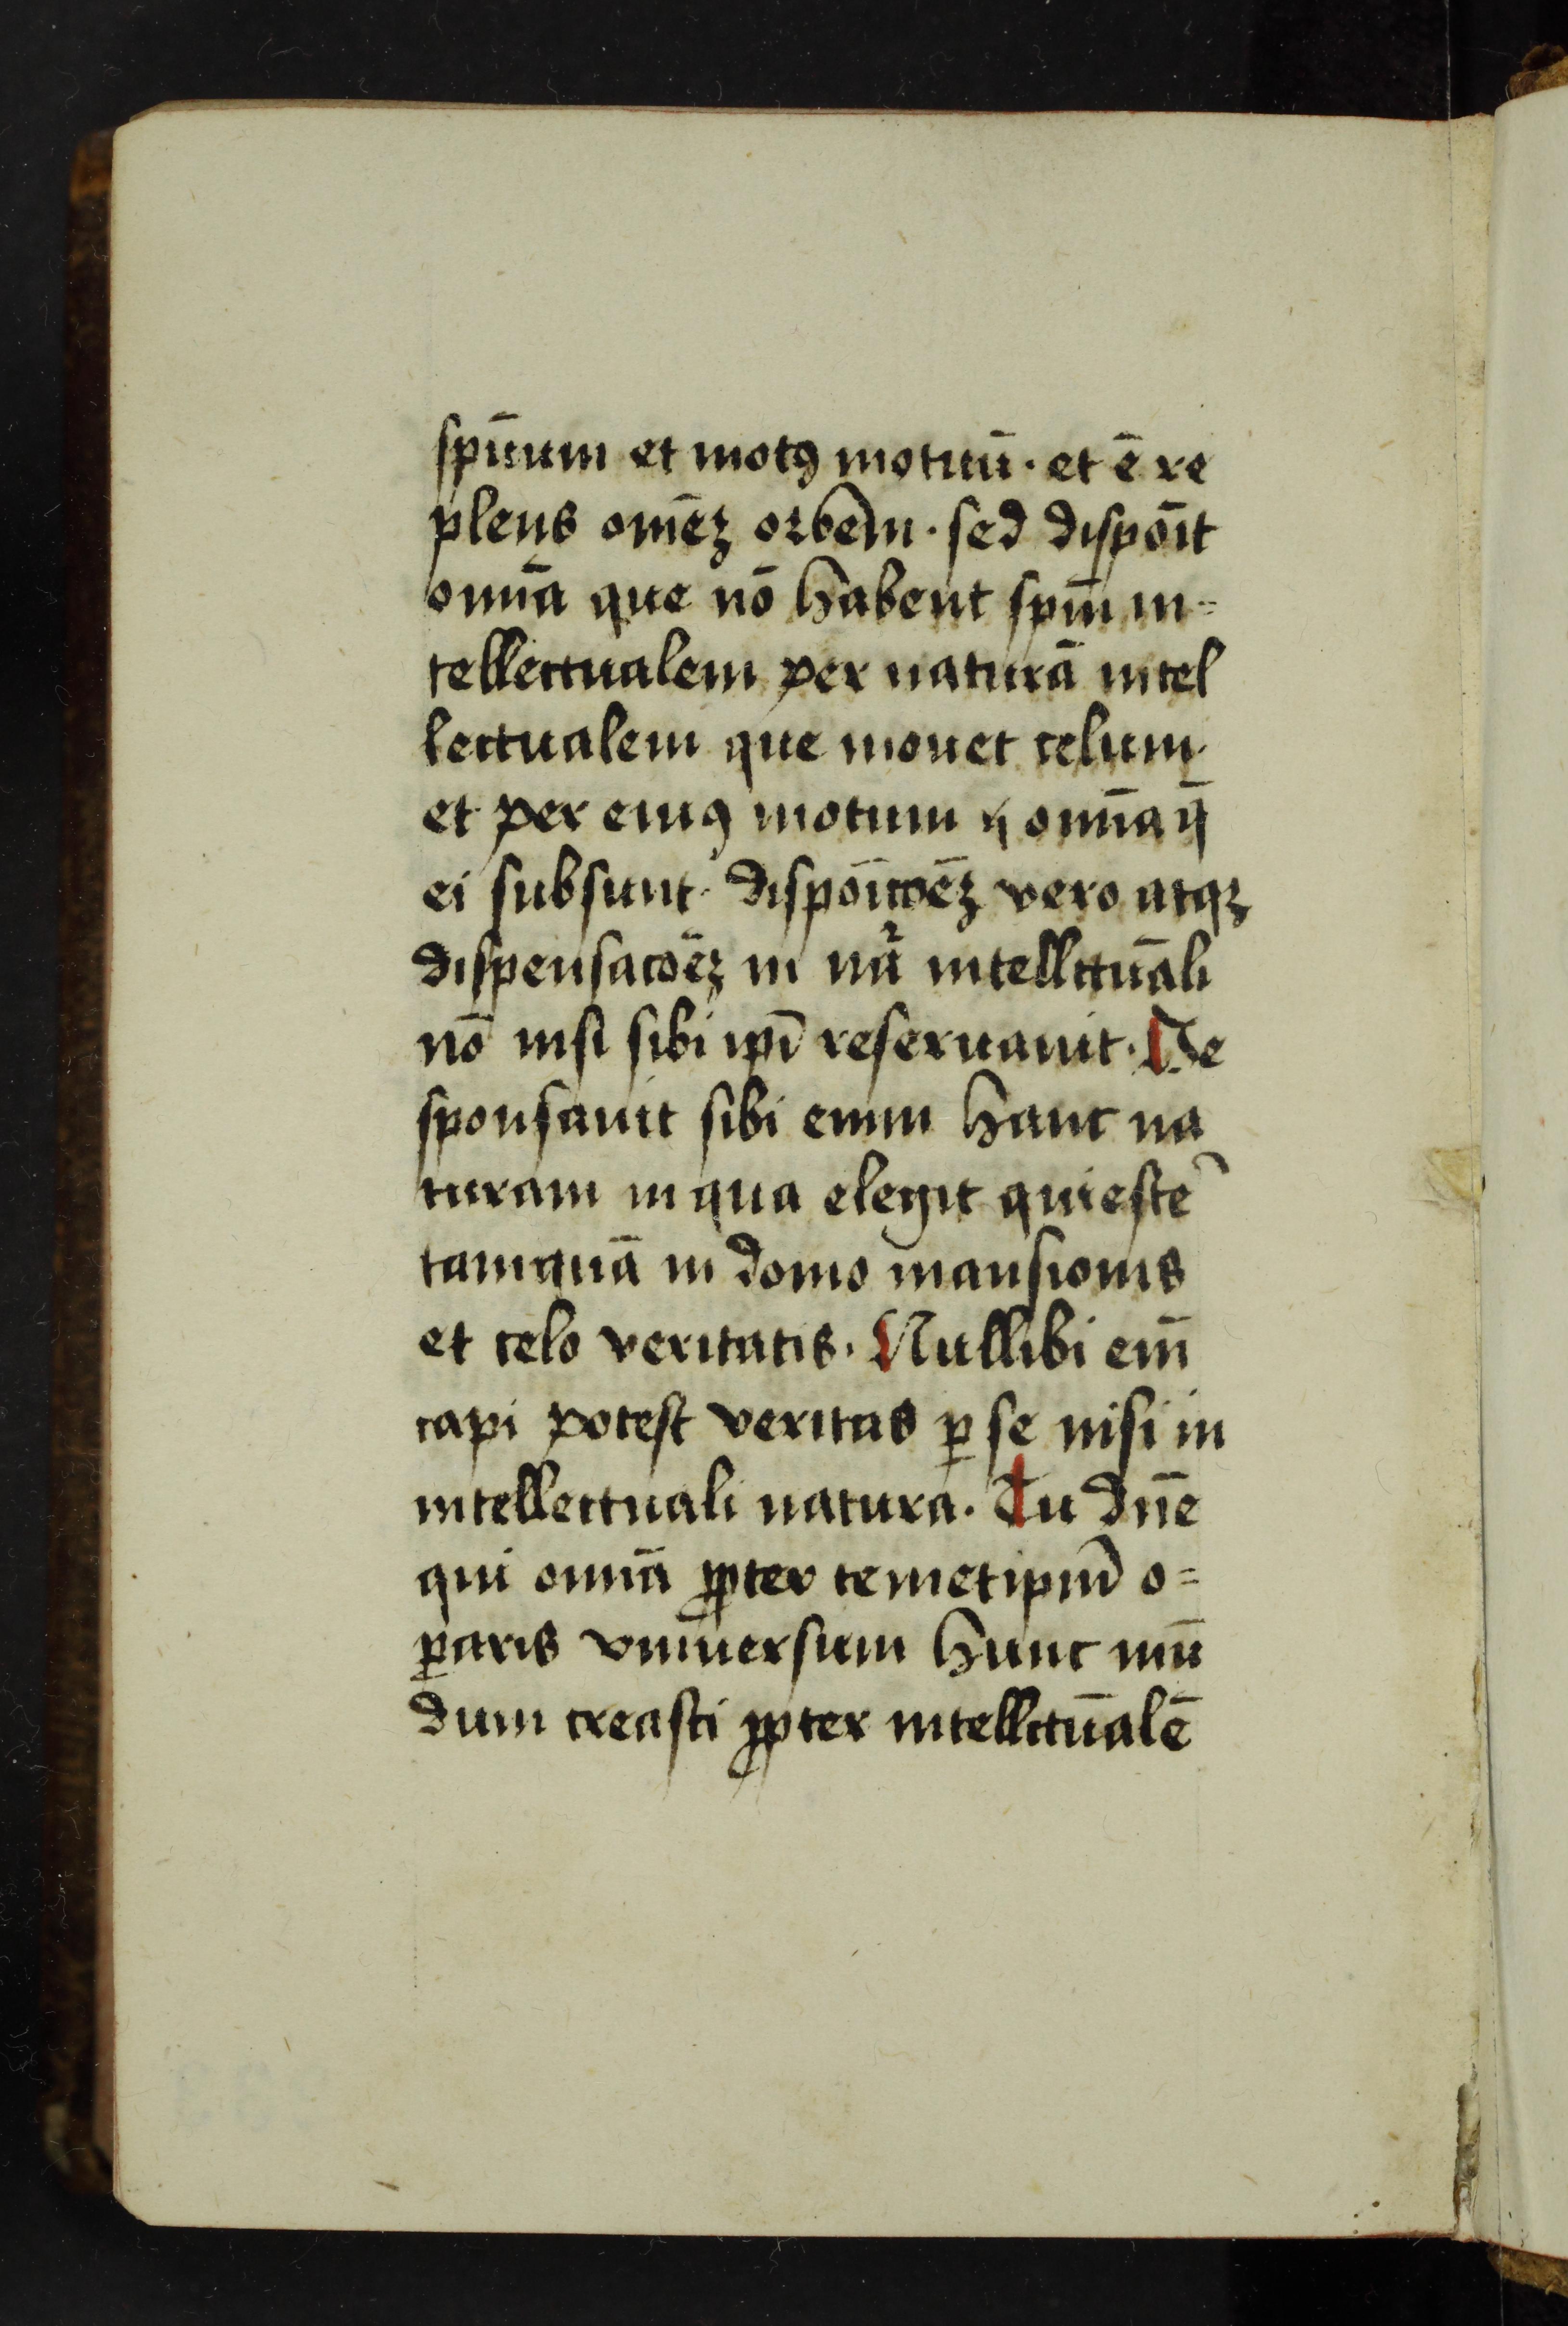 spūum et motꝯ motuū · et ē re
plens om̄eꝫ orbem · sed dispōit
omīa que nō habent spm̄ in=
tellectualem per naturā intel
lectualem que mouet celum ·
et per eiuꝯ motum ⁊ omīa q̄
ei subsunt · dispōicōeꝫ vero atqꝫ
dispensacōeꝫ in nā intellctuāli
nō nisi sibi ipī reseruauit · De
sponsauit sibi enim hanc na
turam in qua elegit quiesce᷑
tamquā in domo mansionis
et celo veritatis · Nullibi em̄
capi potest veritas ꝑ se nisi in
intellectuali natura · Tu dn̄e
qui omīa ꝓpter temetipm̄ o=
ꝑaris vniuersum hunc mū
dum creasti ꝓpter intellctuālē